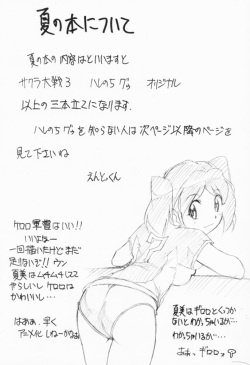 夏の本について
夏の本の内容はといいますと
サクラ大戦3 ハレのちグゥ オリジナル
以上の三本立てになります.
ハレのちグゥを知らない人は次ページ以降のページを
見て下さいね
えんどくん
ケロロ軍曹はいい!!
いいよなー
一回描いたけどまだ
足りないぞ!! ウン
夏美はムチムチしてて
やらしいしケロロは
かわいいし…
はぁぁ、早く
アニメ化しねーかなぁ
夏美はギロロとくっつか
ないとわかっちゃいるが…
わかっちゃいるが…
おぉ、ギロロッ